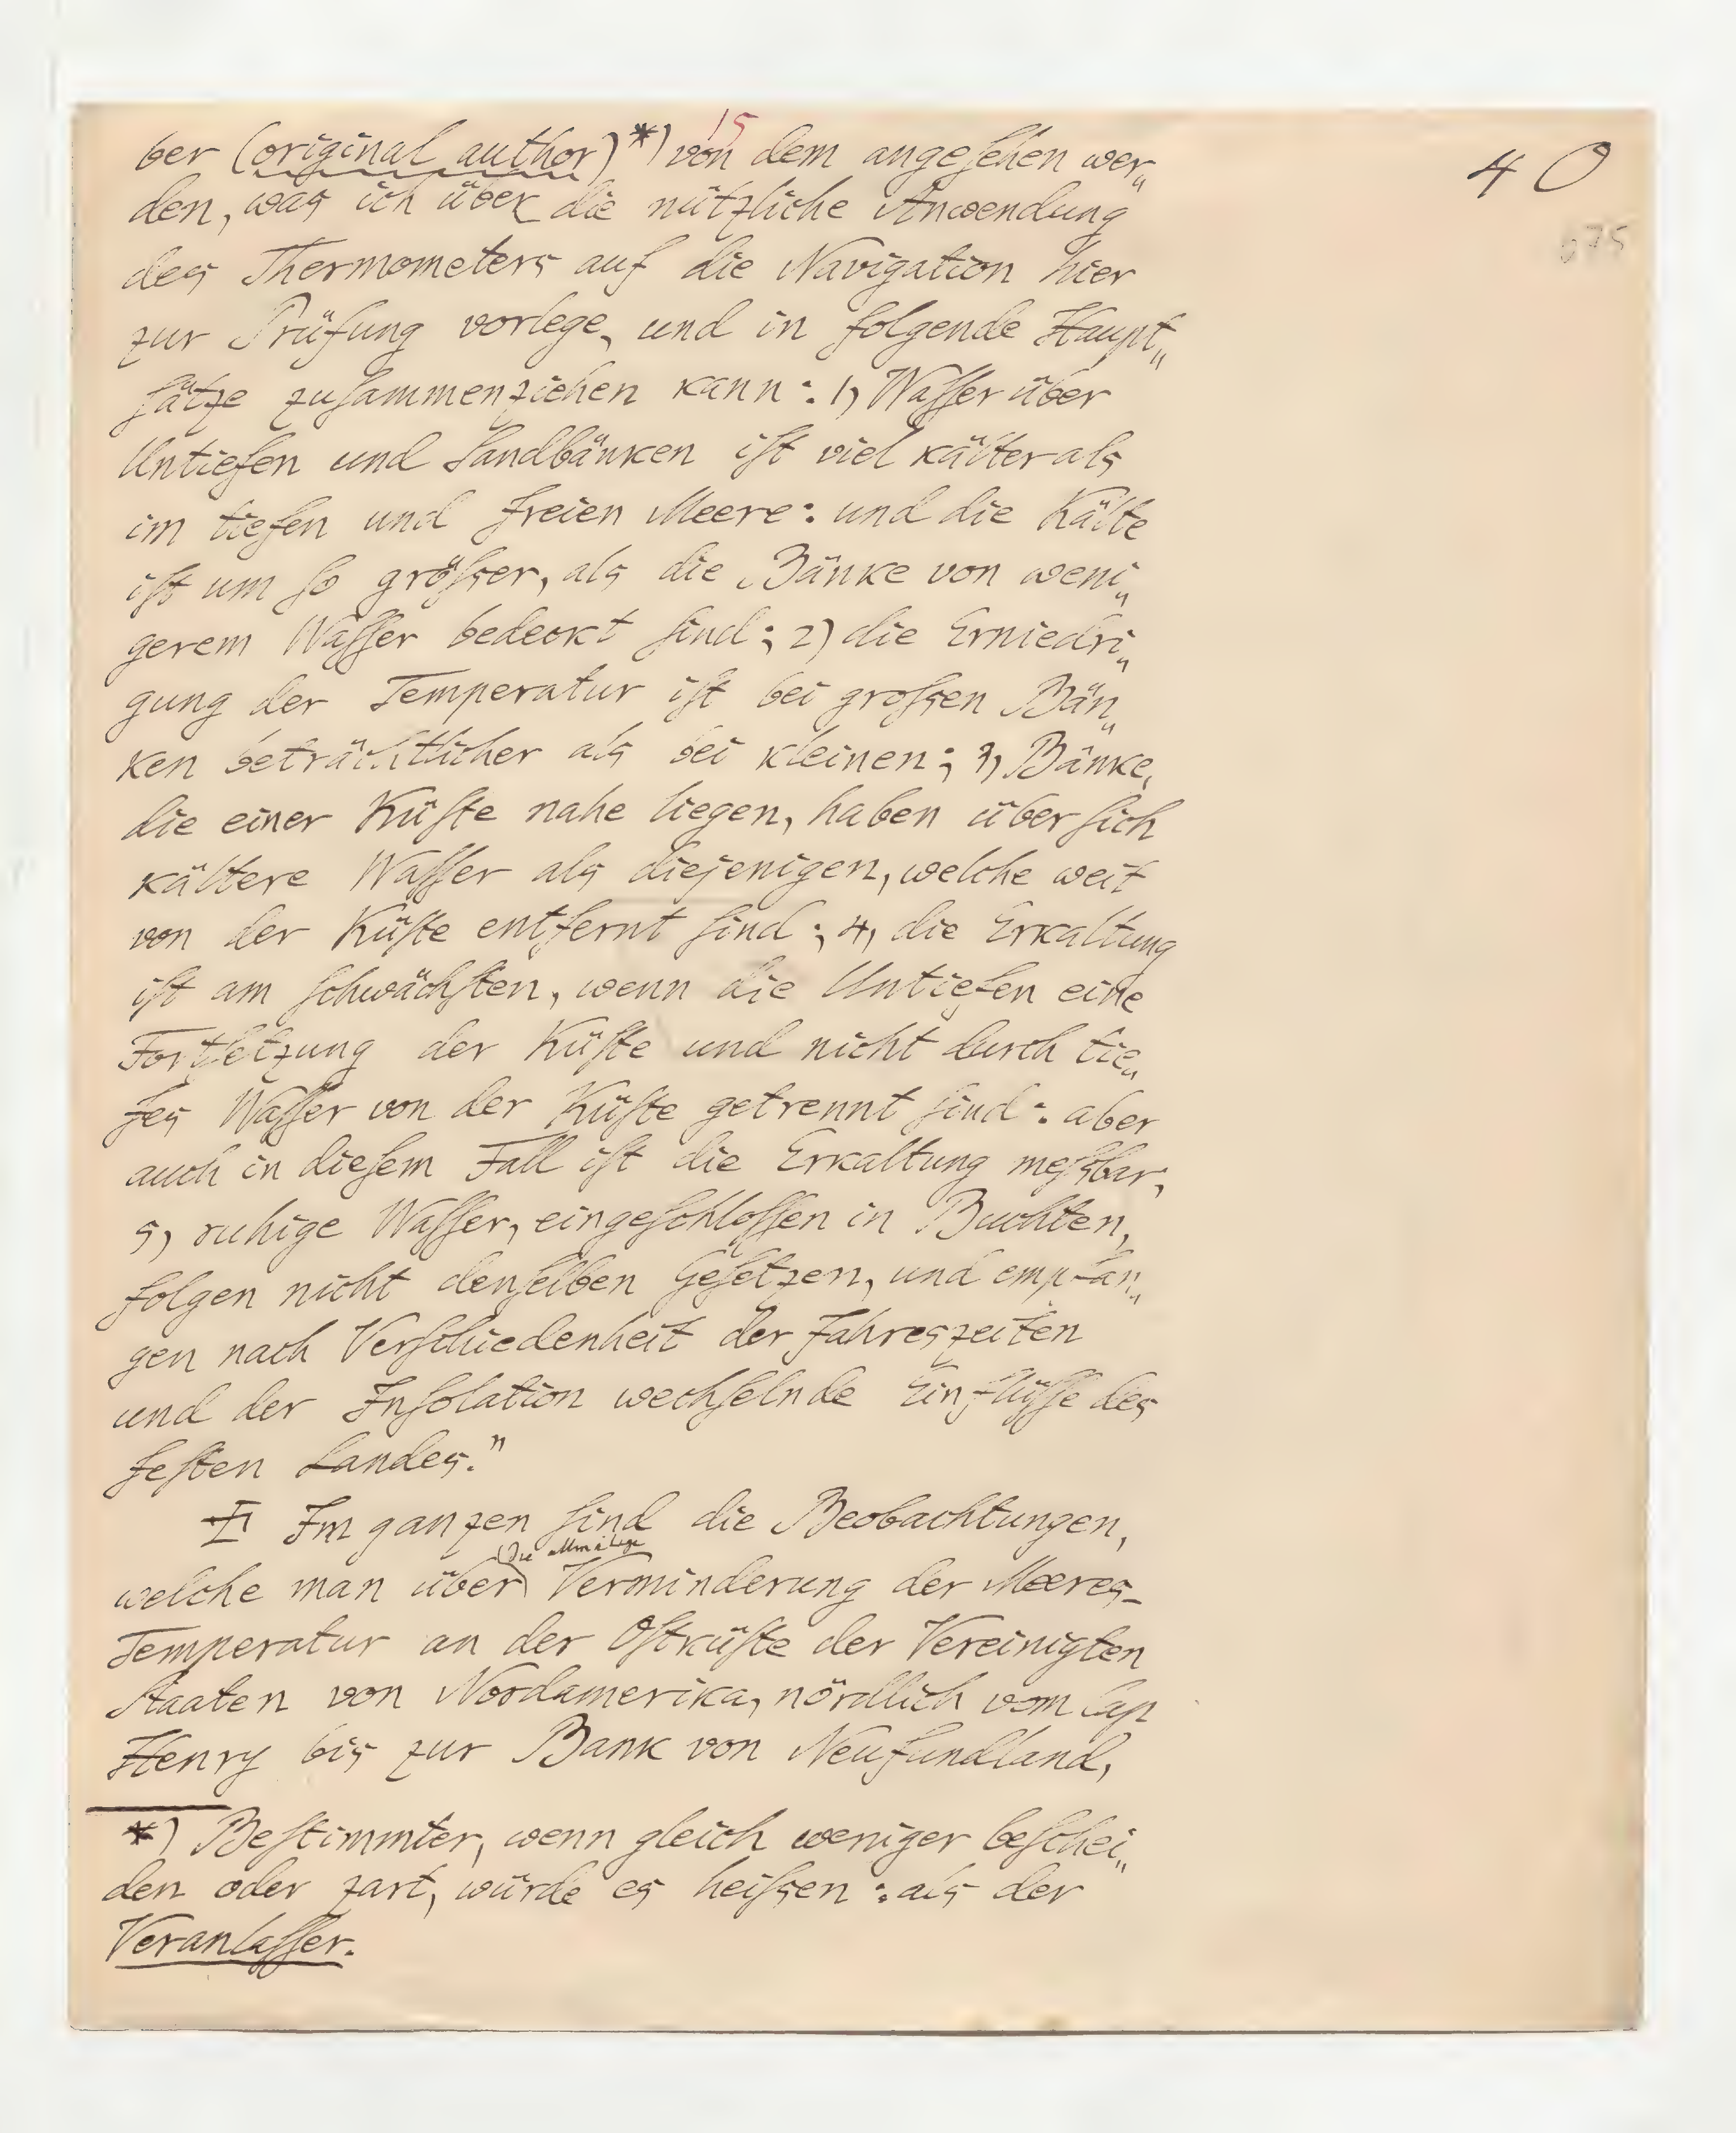 15
40
675
ber (original author)*) von dem angesehen wer„
den, was ich über die nützliche Anwendung
des Thermometers auf die Navigation hier
zur Prüfung vorlege, und in folgende Haupt„
sätze zusammenziehen kann: 1) Wasser über
Untiefen und Sandbänken ist viel kälter als
im tiefen und freien Meere: und die Kälte
ist um so grösser, als die Bänke von weni„
gerem Wasser bedeckt sind; 2) die Erniedri„
gung der Temperatur ist bei grossen Bän„
ken beträchtlicher als bei kleinen; 3) Bänke,
die einer Küste nahe liegen, haben über sich
kältere Wasser als diejenigen, welche weit
von der Küste entfernt sind; 4, die Erkaltung
ist am schwächsten, wenn die Untiefen eine
Fortsetzung der Küste und nicht durch tie„
fes Wasser von der Küste getrennt sind: aber
auch in diesem Fall ist die Erkaltung messbar;
5) ruhige Wasser, eingeschlossen in Buchten,
folgen nicht denselben Gesetzen, und empfan„
gen nach Verschiedenheit der Jahreszeiten
und der Insolation wechselnde Einflüsse des
festen Landes."
Im ganzen sind die Beobachtungen,
die allmälige
welche man über Verminderung der Meeres-
Temperatur an der Ostküste der Vereinigten
Staaten von Nordamerika, nördlich vom Cap
Henry bis zur Bank von Neufundland,
*) Bestimmter, wenn gleich weniger beschei„
den oder zart, würde es heissen: als der
Veranlasser.